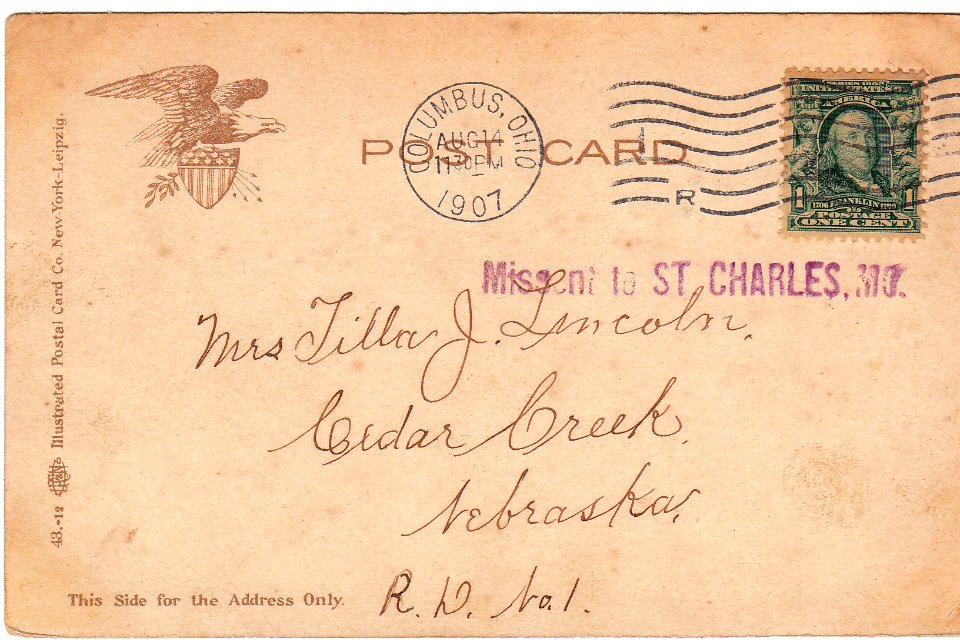 POST CARD
COLUMBUS, OHIO
AUG 14
11 30 PM
1907
R
SERIES 1902
UNITED STATES OF
AMERICA
1
1706 FRANKLIN 1790
POSTAGE
ONE CENT
Missent to ST. CHARLES, MO.
Mrs Tilla J. Lincoln.
Cedar Creek.
Nebraska.
R. D. No. 1.
This Side for the Address Only.
43.-12 Illustrated Postal Card Co. New-York-Leipzig.